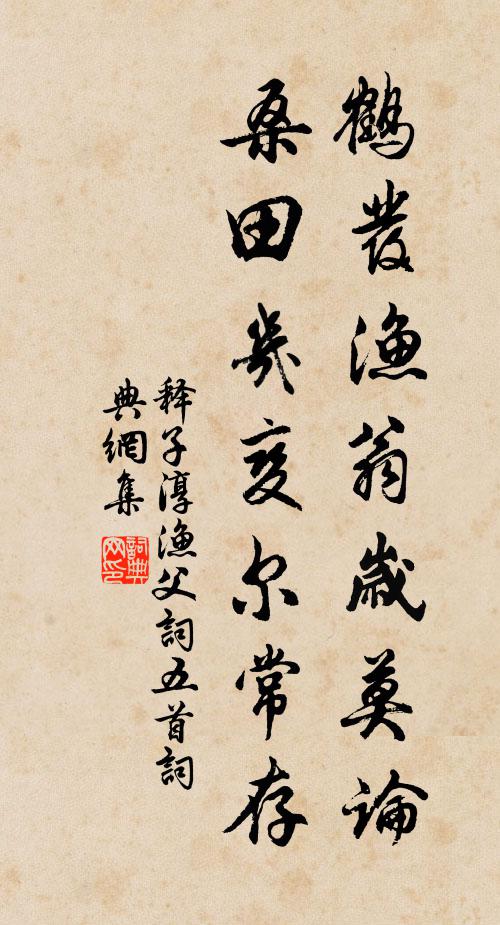 鶴发漁翁歲莫論
桑田幾变尔常存
释子淳漁父詞五首詞
典網集
詞典網印